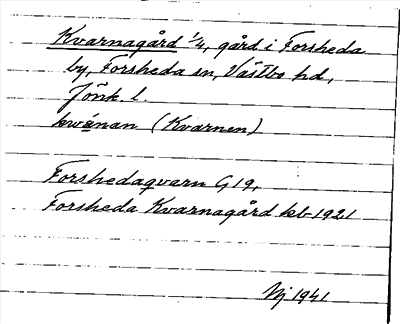 Kvarnagård ¼, gård i Forsheda
by, Forsheda sn, Västbo hd,
Jönk. l.
kwánan (Kvarnen)
Forshedaqvarn G 19,
Forsheda Kvarnagård kb 1921
1941